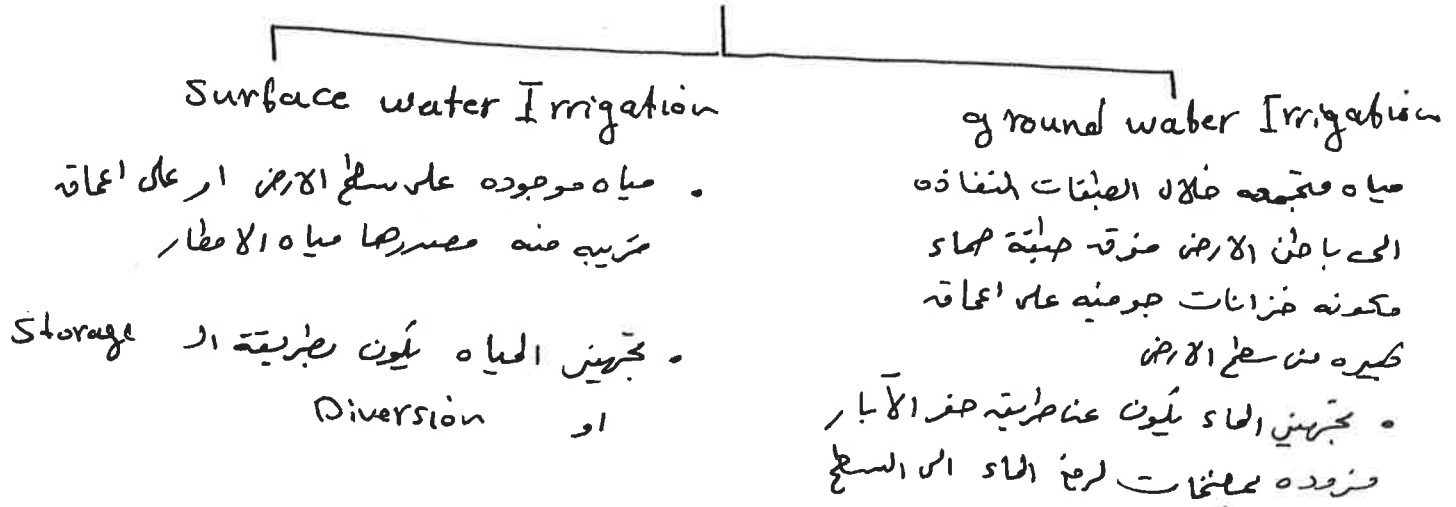 Surface water Irrigation
. مياه موجوده على سطح الارض او على اعماق
قريبه منه مصدرها مياه الامطار
. تجهيز المياه يكون بطريقة الـ Storage
او Diversion
ground water Irrigation
مياه متجمعه خلال الطبقات النفاذه
الى باطن الارض فوق طبقة صماء
مكونه خزانات جوفيه على اعماق
كبيره من سطح الارض
. تجهيز الماء يكون عن طريق حفر الآبار
مزوده بمضخات لرفع الماء الى السطح